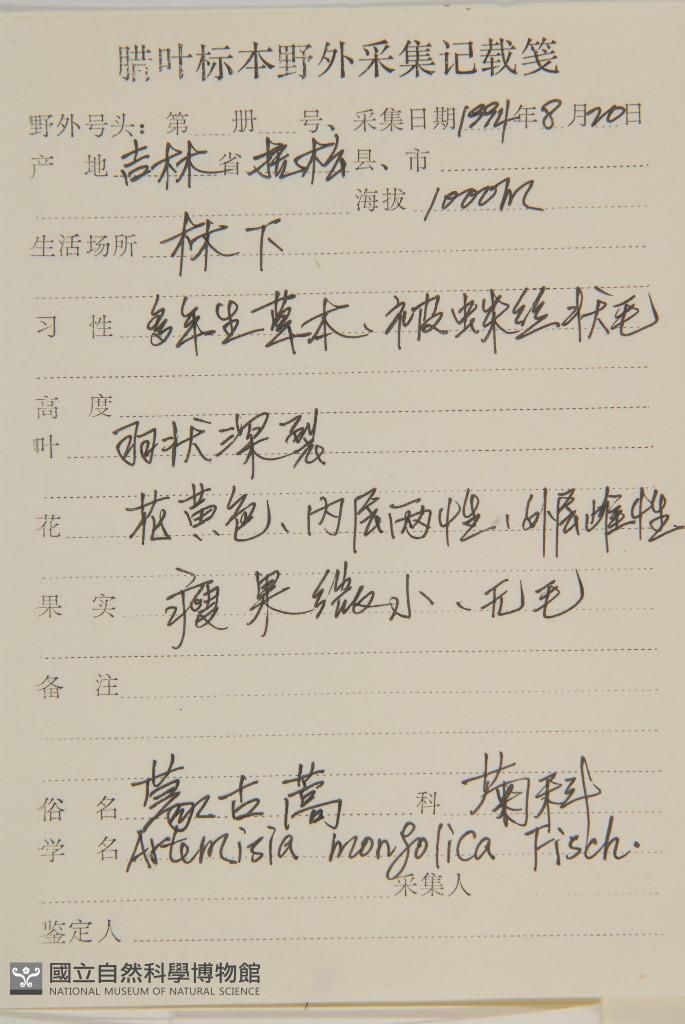 腊叶标本野外采集记载笺
野外号头: 第 册 号、采集日期1994年8月20日
产 地 吉林省 县、市
海拔 1000m
生活场所 林下
习 性 多年生草本、被蛛丝状毛
高 度
叶 羽状深裂
花 花黄色、内层两性、外层雌性
果 实 瘦果微小、无毛
备 注
俗 名 蒙古蒿 科 菊科
学 名 Artemisia mongolica Fisch.
采集人
鉴定人
國立自然科學博物館
NATIONAL MUSEUM OF NATURAL SCIENCE